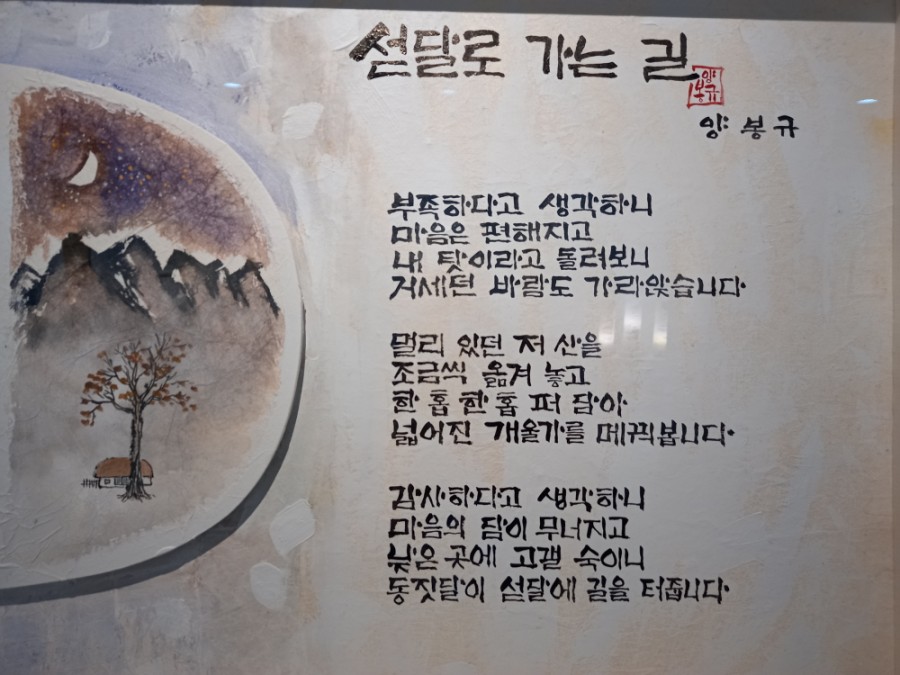 섣달로 가는 길
양봉규
양 봉 규
부족하다고 생각하니
마음은 편해지고
내 탓이라고 돌려보니
거세던 바람도 가라앉습니다.
멀리 있던 저 산을
조금씩 옮겨 놓고
한 홉 한 홉 퍼 담아
넓어진 개울가를 메꿔봅니다.
감사하다고 생각하니
마음의 담이 무너지고
낮은 곳에 고갤 숙이니
동짓달이 섣달에 길을 터줍니다.